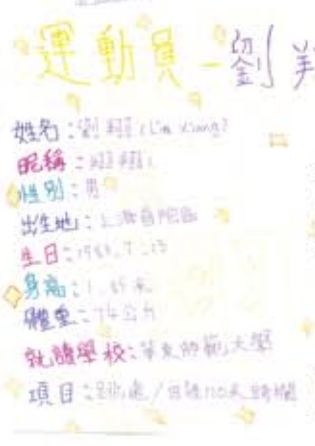 運動員-劉翔
姓名:劉翔(Liu Xiang)
昵稱:翔翔
性別:男
出生地:上海普陀區
生日:1983.7.13
身高:1.89米
體重:74公斤
就讀學校:華東師範大學
項目:跳遠/田徑110米跨欄